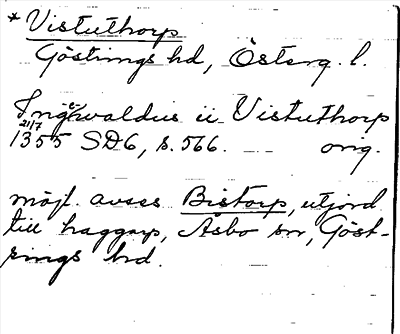 * Vistuthorp
Göstrings hd, Österg. l.
Ingewaldus ii Vistuthorp
21/7
1355 SD6, s. 566. orig.
möjl. avses Bistorp, utjord
till Haggarp, Åsbo sn, Göst-
rings hd.